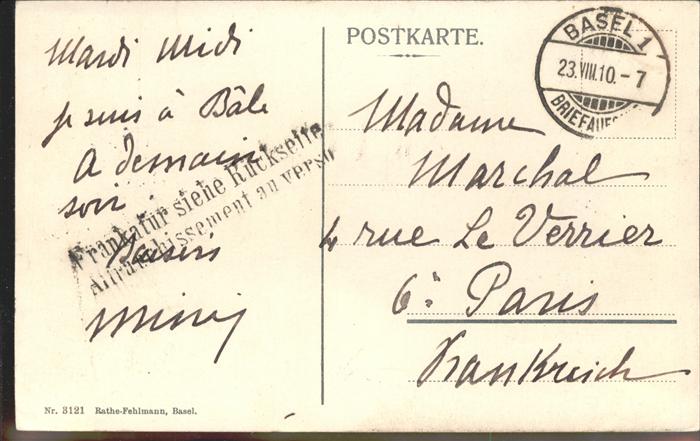 Mardi Midi
je suis à Bâle
A demain
soir
Baisers
Frankatur siehe Rückseite
Affranchissement au verso
POSTKARTE.
BASEL 1
23.VIII.10.-7
Madame
Marchal
4 rue Le Verrier
6e Paris
Frankreich
Nr. 3121 Rathe-Fehlmann, Basel.